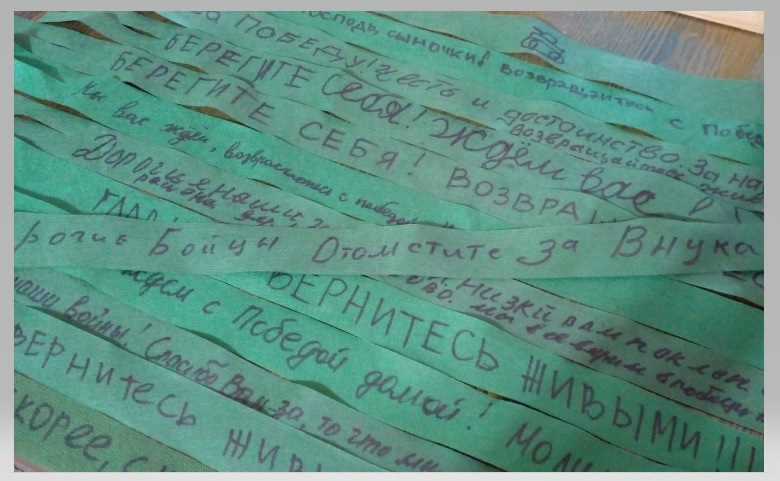 Господь, сыночки! возвращайтесь с Побед
за ПОБЕДУ! честь и достоинство. За на
БЕРЕГИТЕ Себя! Ждём вас
возвращайтесь жив
БЕРЕГИТЕ СЕБЯ! ВОЗВРА
Мы вас ждём, возвращайтесь с победой
Дорогие наши
рогие Бойцы Отомстите За Внука
Низкий вам поклон
мы верим в победу
ВЕРНИТЕСЬ ЖИВЫМИ!!!
ждем с Победой домой! Моли
наши войны! Спасибо Вам за, то что мы
ВЕРНИТЕСЬ ЖИВ
корее, с